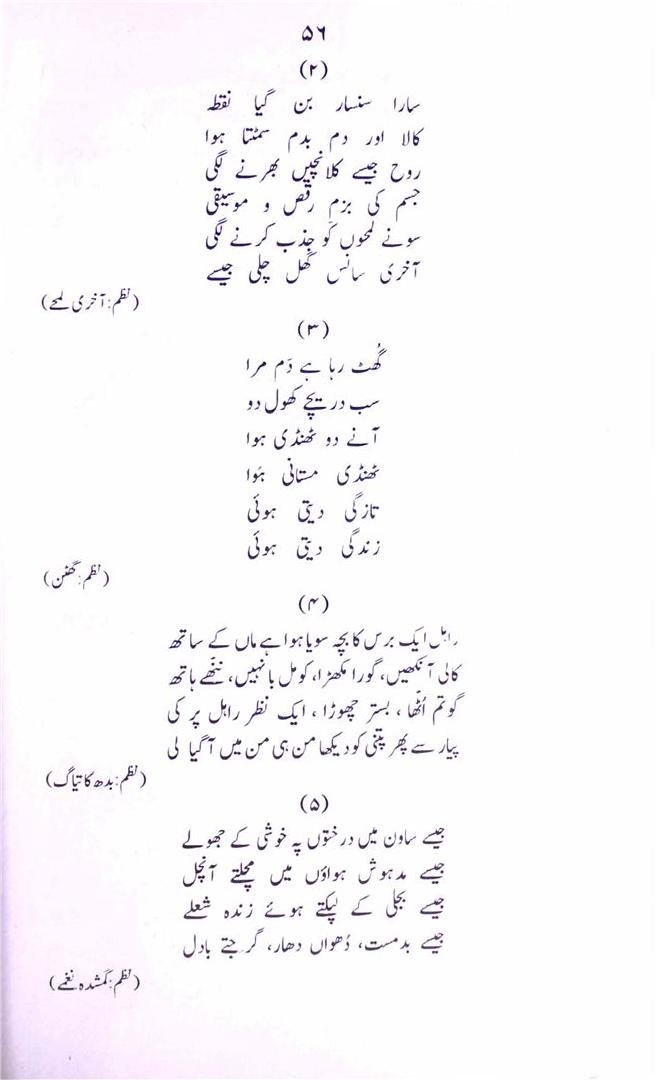 ۵۶
(۲)
سارا سنسار بن گیا نقطہ
کالا اور دم بدم سمٹتا ہوا
روح جیسے کلانچیں بھرنے لگی
جسم کی بزمِ رقص و موسیقی
سونے لمحوں کو جذب کرنے لگی
آخری سانس گھل چلی جیسے
(نظم: آخری لمحے)
(۳)
گُھٹ رہا ہے دَم مرا
سب دریچے کھول دو
آنے دو ٹھنڈی ہوا
ٹھنڈی مستانی ہَوا
تازگی دیتی ہوئی
زندگی دیتی ہوئی
(نظم: گھٹن)
(۴)
راہل ایک برس کا بچہ سویا ہوا ہے ماں کے ساتھ
کالی آنکھیں، گورا مکھڑا، کومل بانہیں، ننّھے ہاتھ
گوتم اُٹھا، بستر چھوڑا، ایک نظر راہل پر کی
پیار سے پھر پتنی کو دیکھا من ہی من میں آ گیا لی
(نظم: بدھ کا تیاگ)
(۵)
جیسے ساون میں درختوں پہ خوشی کے جھولے
جیسے مدہوش ہواؤں میں مچلتے آنچل
جیسے بجلی کے لپکتے ہوئے زندہ شعلے
جیسے بدمست، دُھواں دھار، گرجتے بادل
(نظم: گمشدہ نغمے)